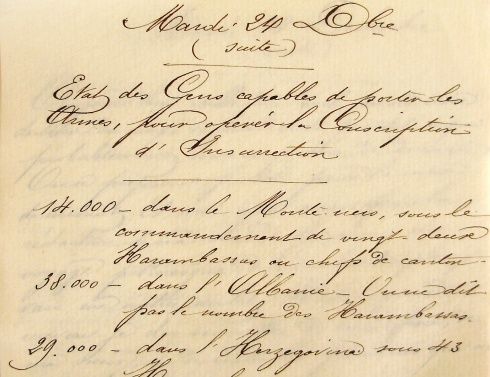 Mardi 24 Xbre
(suite)
Etat des Gens capables de porter les
Armes, pour opérer la Conscription
d'Insurrection
14.000 – dans le Monté nero, sous le
commandement de vingt-deux
Harambassas ou chefs de canton –
38.000 – dans l'Albanie – On ne dit
pas le nombre des Harambassas.
29.000 – dans l'Herzegovine sous 43